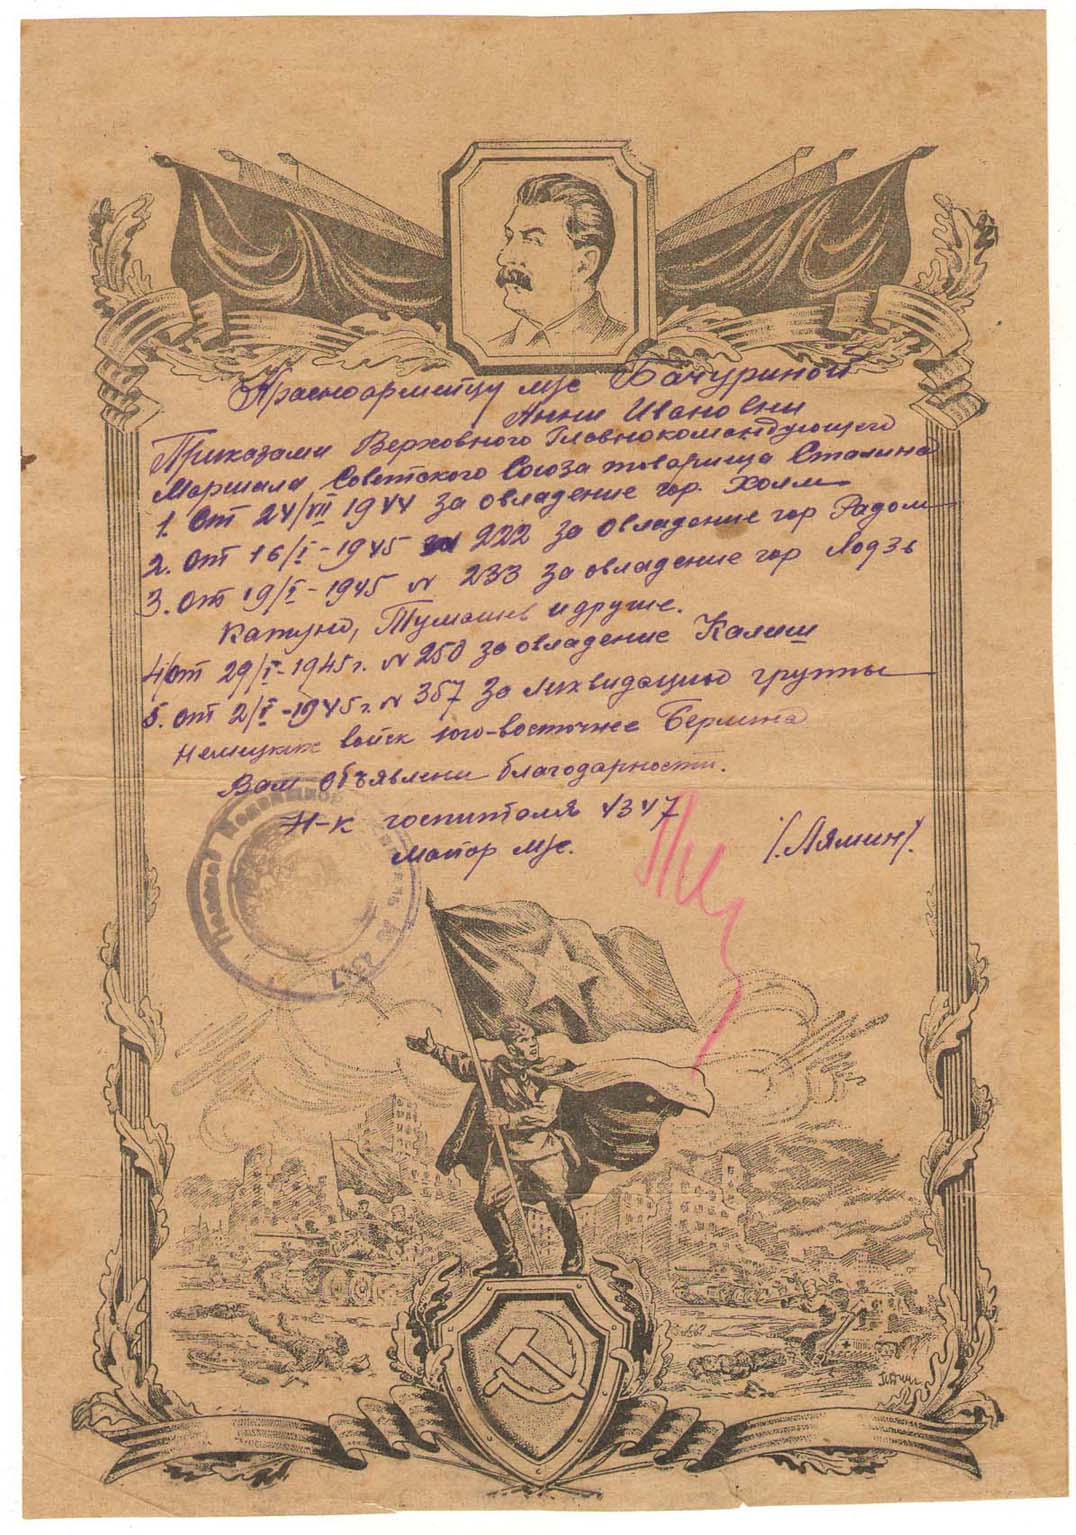 Красноармейцу м/с Бачуриной
Анне Ивановне
Приказами Верховного Главнокомандующего
Маршала Советского Союза товарища Сталина
1. От 24/VII 1944 за овладение гор. Холм
2. От 16/I-1945 № 222 за овладение гор Радом
3. От 19/I-1945 № 233 за овладение гор Лодзь
Катуно, Тумашев и другие.
4/От 29/I-1945г. № 250 за овладение Калиш
5. От 2/I-1945г. № 357 за ликвидацию группы
немецких войск юго-восточнее Берлина
Вам объявлены благодарности.
Н-к госпиталя 4347
Майор м/с.
/.Лямин/.
№ 4347